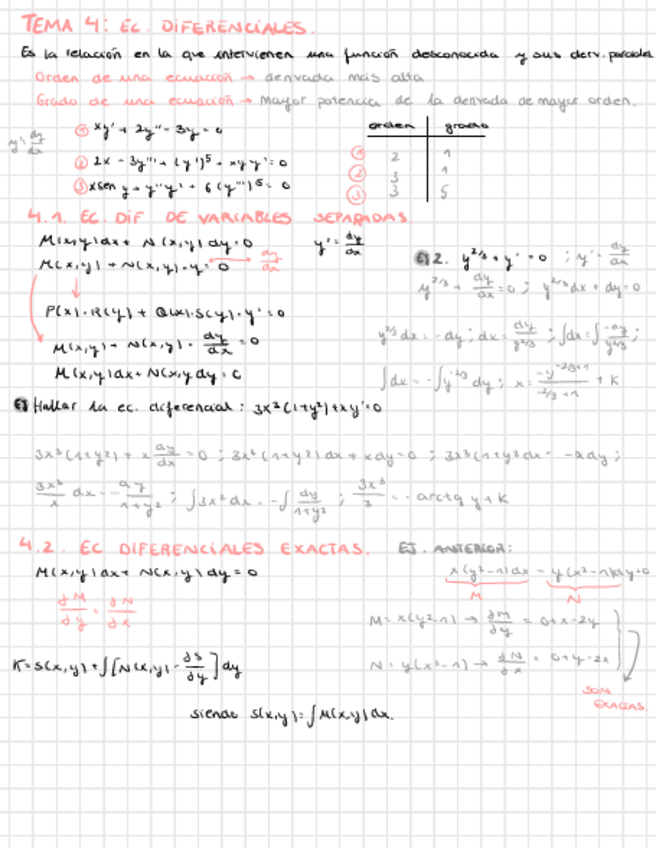 TEMA 4: EC. DIFERENCIALES.
Es la relación en la que intervienen una función desconocida y sus deriv. parciales
Orden de una ecuación → derivada más alta
Grado de una ecuación → Mayor potencia de la derivada de mayor orden.
y' = dy/dx
① xy' + 2y'' - 3y = 0
② 2x - 3y''' + (y')^5 + xyy' = 0
③ xsen y + y''y' + 6(y''')^5 = 0
orden | grado
① 2 | 1
② 3 | 1
③ 3 | 5
4.1. EC. DIF DE VARIABLES SEPARADAS
M(x,y)dx + N(x,y)dy = 0 y' = dy/dx
M(x,y) + N(x,y)·y' = 0 dy/dx
P(x)·R(y) + Q(x)·S(y)·y' = 0
M(x,y) + N(x,y)· dy/dx = 0
M(x,y)dx + N(x,y)dy = C
EJ 2. y^2/3 + y' = 0 ; y' = dy/dx
y^2/3 + dy/dx = 0 ; y^2/3 dx + dy = 0
y^2/3 dx = -dy ; dx = dy/y^2/3 ; ∫dx = ∫ -dy/y^2/3 ;
∫dx = -∫y^-2/3 dy ; x = -y^-2/3+1/-2/3+1 + K
EJ Hallar la ec. diferencial: 3x²(1+y²) + xy' = 0
3x³(1+y²) + x dy/dx = 0 ; 3x³(1+y²)dx + xdy = 0 ; 3x³(1+y²)dx = -xdy ;
3x³/x dx = - dy/1+y² ; ∫3x²dx = -∫ dy/1+y² ; 3x³/3 = - arctg y + K
4.2. EC DIFERENCIALES EXACTAS.
M(x,y)dx + N(x,y)dy = 0
∂M/∂y = ∂N/∂x
K = S(x,y) + ∫[N(x,y) - ∂S/∂y] dy
siendo S(x,y) = ∫M(x,y)dx.
EJ. ANTERIOR:
x(y²-1)dx = y(x²-1)dy = 0
M N
M = x(y²-1) → ∂M/∂y = 0+x·2y
N = y(x²-1) → ∂N/∂x = 0+y·2x
SON
EXACTAS.